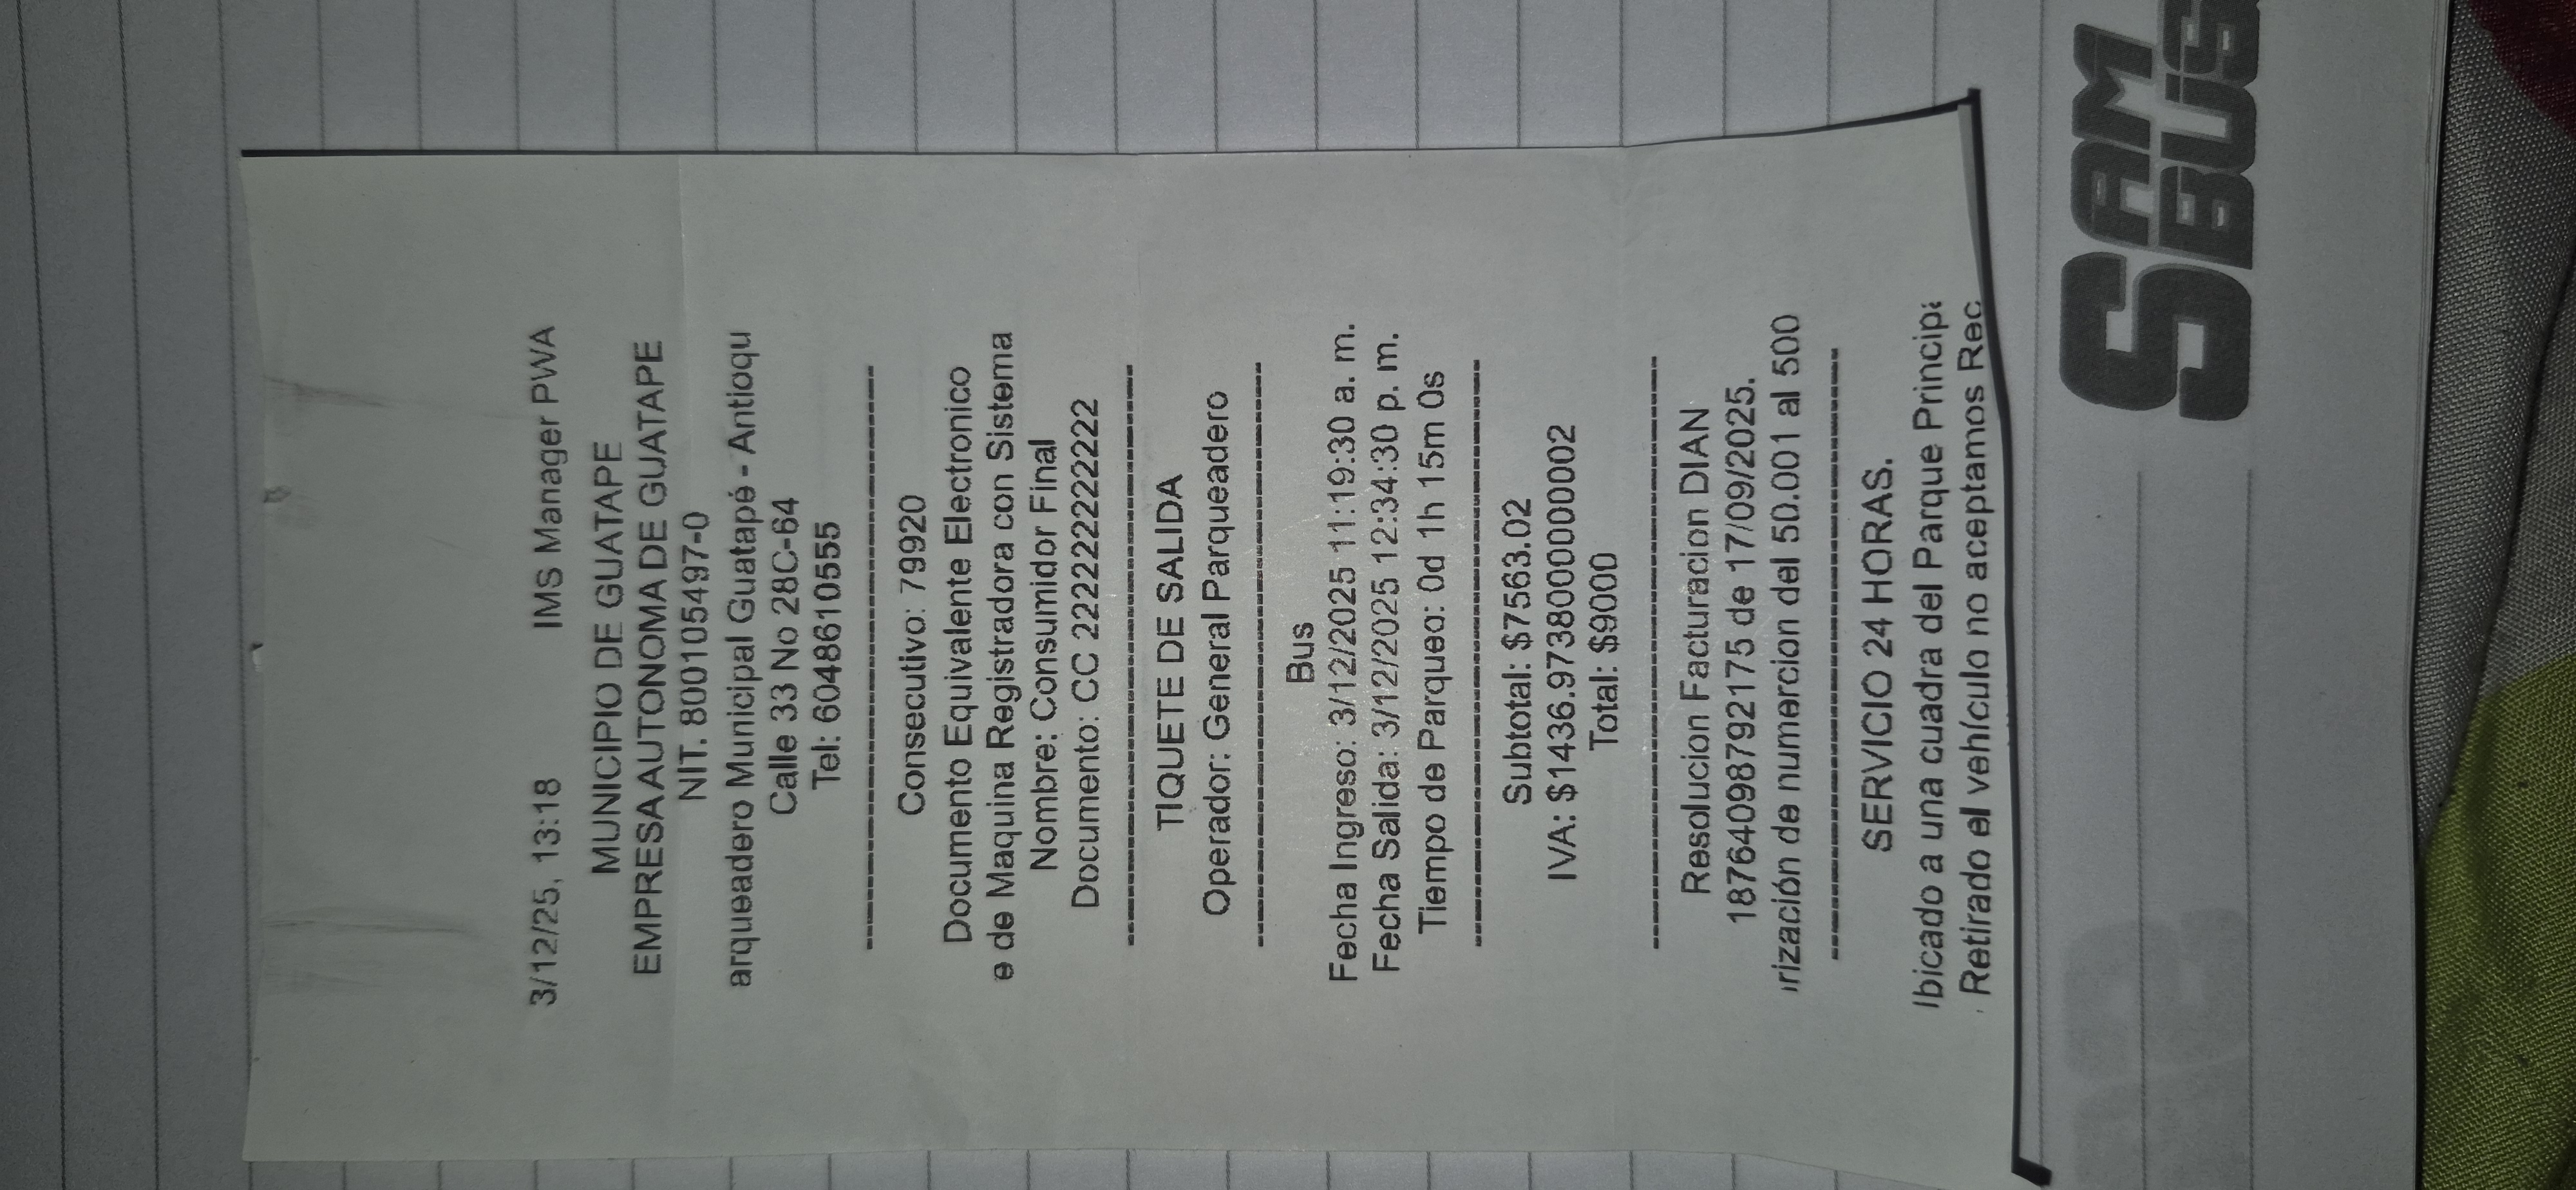 3/12/25, 13:18 IMS Manager PWA
MUNICIPIO DE GUATAPE
EMPRESA AUTONOMA DE GUATAPE
NIT. 800105497-0
arqueadero Municipal Guatapé - Antioqu
Calle 33 No 28C-64
Tel: 6048610555
Consecutivo: 79920
Documento Equivalente Electronico
e de Maquina Registradora con Sistema
Nombre: Consumidor Final
Documento: CC 222222222222
TIQUETE DE SALIDA
Operador: General Parqueadero
Bus
Fecha Ingreso: 3/12/2025 11:19:30 a. m.
Fecha Salida: 3/12/2025 12:34:30 p. m.
Tiempo de Parqueo: 0d 1h 15m 0s
Subtotal: $7563.02
IVA: $1436.9738000000002
Total: $9000
Resolucion Facturacion DIAN
18764098792175 de 17/09/2025.
rización de numercion del 50.001 al 500
SERVICIO 24 HORAS.
bicado a una cuadra del Parque Principa
Retirado el vehículo no aceptamos Rec
SAM
BUS